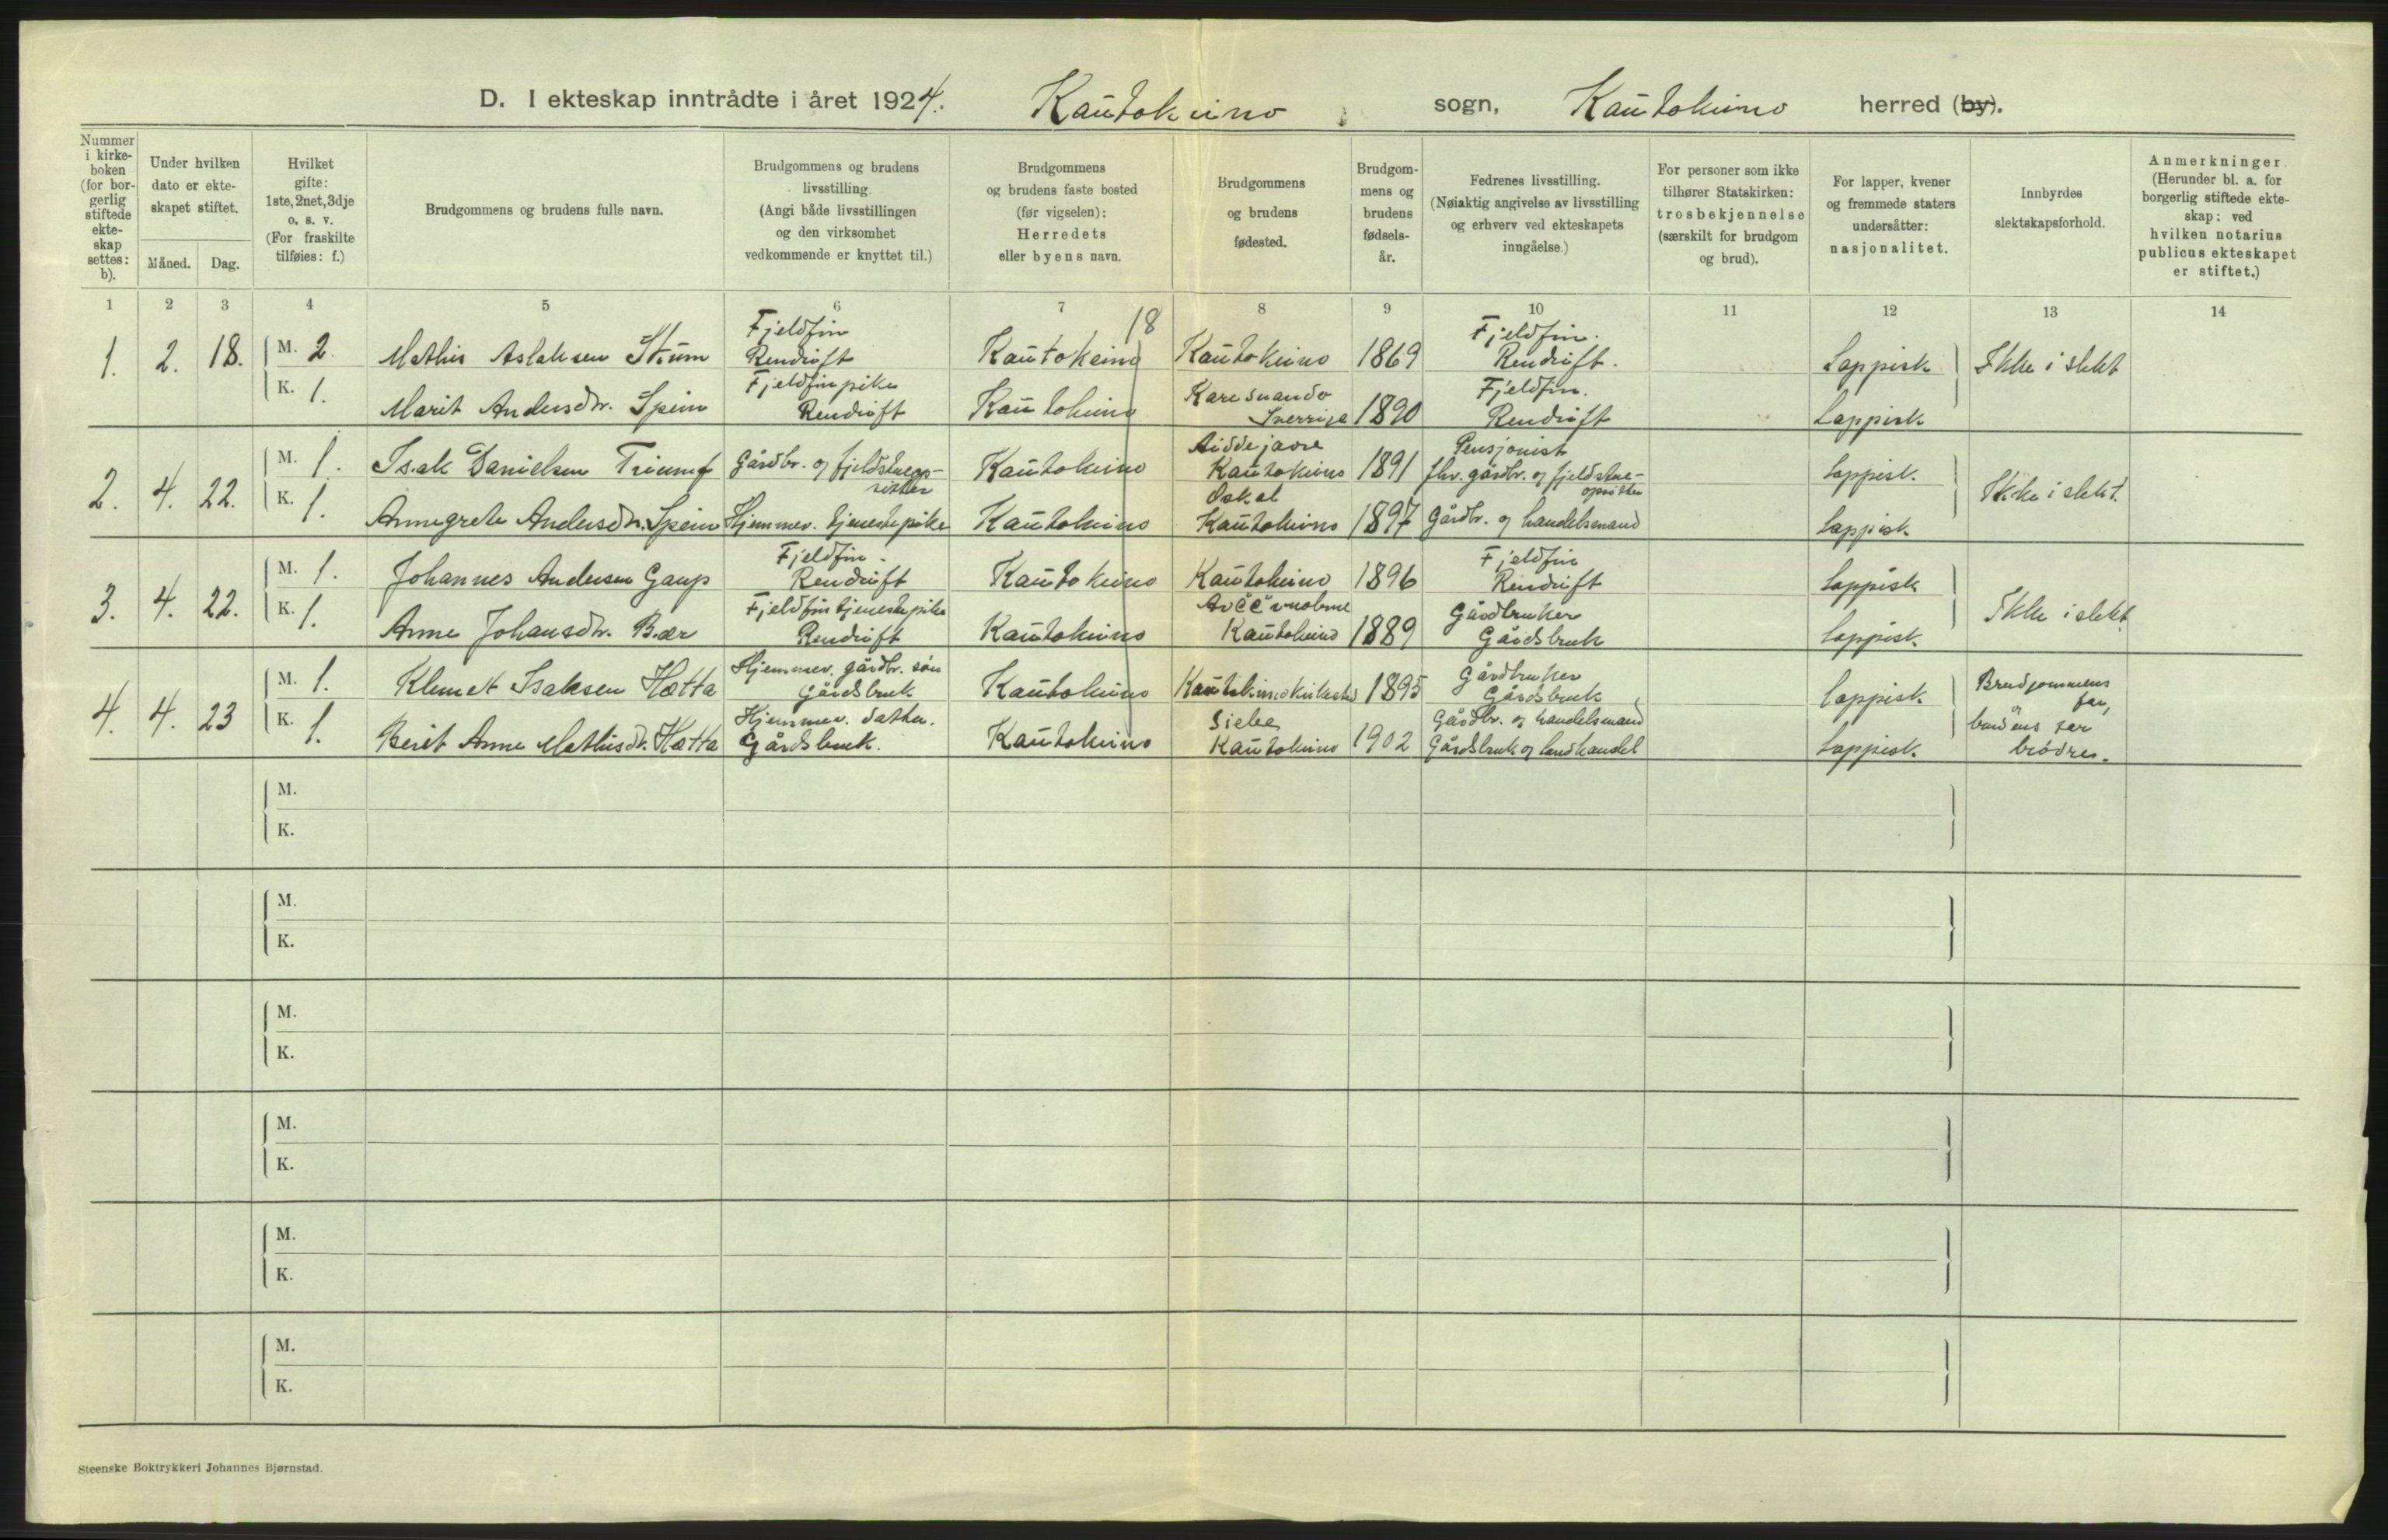 D. I ekteskap inntrådte i året 1924. Kautokeino sogn, Kautokeino herred (by).
Nummer i kirke-boken (for bor-gerlig stiftede ekte-skap settes: b).
Under hvilken dato er ekte-skapet stiftet.
Måned.
Dag.
Hvilket gifte: 1ste, 2net, 3dje o. s. v. (For fraskilte tilføies: f.)
Brudgommens og brudens fulle navn.
Brudgommens og brudens livsstilling. (Angi både livsstillingen og den virksomhet vedkommende er knyttet til.)
Brudgommens og brudens faste bosted (før vigselen): Herredets eller byens navn.
Brudgommens og brudens fødested.
Brudgom-mens og brudens fødsels-år.
Fedrenes livsstilling. (Nøiaktig angivelse av livsstilling og erhverv ved ekteskapets inngåelse.)
For personer som ikke tilhører Statskirken: trosbekjennelse (særskilt for brudgom og brud).
For lapper, kvener og fremmede staters undersåtter: nasjonalitet.
Innbyrdes slektskapsforhold.
Anmerkninger. (Herunder bl. a. for borgerlig stiftede ekte-skap: ved hvilken notarius publicus ekteskapet er stiftet.)
1 2 3 4 5 6 7 8 9 10 11 12 13 14
18
1. 2. 18. M. 2. Mathis Aslaksen Skum Fjeldfin Rendrift Kautokeino Kautokeino 1869 Fjeldfin. Rendrift. Lappisk Ikke i slekt
K. 1. Marit Andersdtr. Spein Fjeldfinpike Rendrift Kautokeino Karesuando Sverrige 1890 Fjeldfin. Rendrift Lappisk
2. 4. 22. M. 1. Isak Danielsen Triumf Gårdbr. og fjeldstueop-sitter Kautokeino Aiddejavre Kautokeino 1891 Pensjonist fhv. gårdbr. og fjeldstue-opsitter Lappisk. Ikke i slekt.
K. 1. Annegrete Andersdtr. Spein Hjemmev. tjenestepike Kautokeino Oskal Kautokeino 1897 Gårdbr. og handelsmand Lappisk.
3. 4. 22. M. 1. Johannes Andersen Gaup Fjeldfin. Rendrift Kautokeino Kautokeino 1896 Fjeldfin Rendrift Lappisk Ikke i slekt
K. 1. Anne Johansdtr. Bær Fjeldfintjenestepike Rendrift Kautokeino Kautokeino 1889 Gårdbruker Gårdsbruk Lappisk.
4. 4. 23 M. 1. Klemet Isaksen Hætta Hjemmev. gårdbr. søn Gårdsbruk Kautokeino Kautokeino kirkested 1895 Gårdbruker Gårdsbruk Lappisk. Brudgommens far, og brudens far brödre.
K. 1. Berit Anne Mathisdtr. Hætta Hjemmev. datter. Gårdsbruk. Kautokeino Siebe Kautokeino 1902 Gårdbr. og handelsmand Gårdsbruk og landhandel Lappisk.
M.
K.
M.
K.
M.
K.
M.
K.
M.
K.
M.
K.
Steenske Boktrykkeri Johannes Bjørnstad.